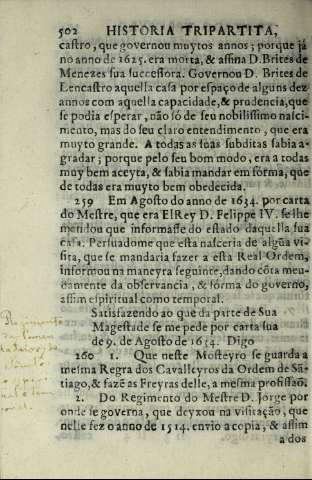 502 HISTORIA TRIPARTITA,
castro, que governou muytos annos; porque já
no anno de 1625. era morta, & assina D. Brites de
Menezes sua successora. Governou D. Brites de
Lencastro aquella casa por espaço de alguns dez
annos com aquella capacidade, & prudencia, que
se podia esperar, não só de seu nobilissimo nasci-
mento, mas do seu claro entendimento, que era
muyto grande. A todas as suas subditas sabia a-
gradar; porque pelo seu bom modo, era a todas
muy bem aceyta, & sabia mandar em fórma, que
de todas era muyto bem obedecida.
259 Em Agosto do anno de 1634. por carta
do Mestre, que era ElRey D. Felippe IV. se lhe
mandou que informasse do estado daquella sua
casa. Persuadome que esta nasceria de algũa vi-
sita, que se mandaria fazer a esta Real Ordem,
informou na maneyra seguinte, dando cõta meu-
damente da observancia, & fórma do governo,
assim espiritual como temporal.
Satisfazendo ao que da parte de Sua
Magestade se me pede por carta sua
de 9. de Agosto de 1634. Digo
260 1. Que neste Mosteyro se guarda a
mesma Regra dos Cavalleyros da Ordem de Sã-
tiago, & fazẽ as Freyras delle, a mesma profissaõ.
2. Do Regimento do Mestre D. Jorge por
onde se governa, que deyxou na visitação, que
nelle fez o anno de 1514. envio a copia, & assim
a dos